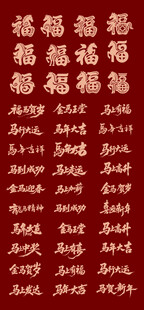 福 福 福 福
福 福 福 福
福 福 福 福
福马贺岁 金马玉堂 马上有福
马行大运 马年大吉 马年吉祥
马年吉祥 马到成功 马上高升
马到成功 马行大运 马年大吉
金马迎春 马上加薪 金马贺岁
龙马精神 马到成功 喜迎新年
马上发财 马上高升
马上中奖 马上有喜 马年大吉
金马贺岁 马上有福 马行大运
马上发达 马年大吉 马贺新年